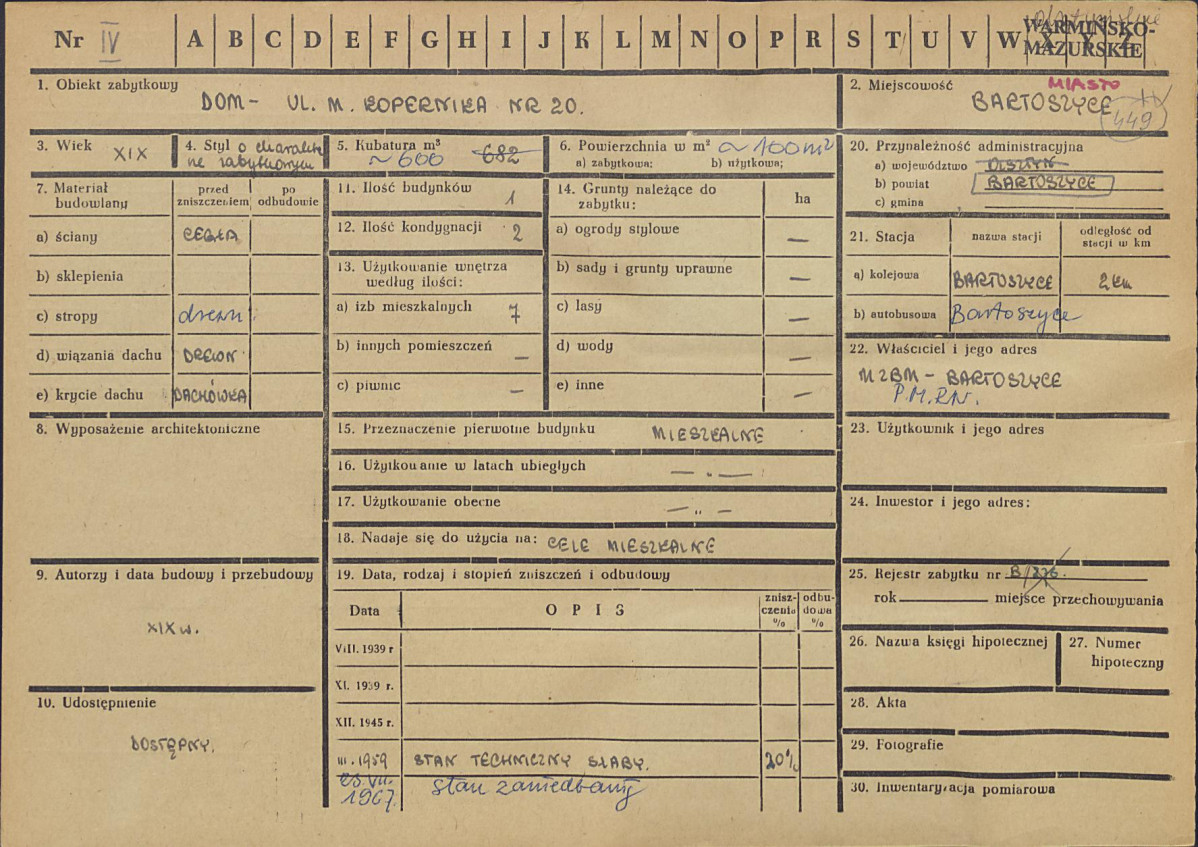 Nr IV A B C D E F G H I J K Ł M N O P R S T U V W X Y Z
WARMIŃSKO-
MAZURSKIE
1. Obiekt zabytkowy
DOM - UL. M. KOPERNIKA NR 20.
2. Miejscowość
MIASTO
BARTOSZYCE
449
3. Wiek XIX
4. Styl o charakte
rze zabytkowym
5. Kubatura m³
~ 600 682
6. Powierzchnia w m² ~ 100 m²
a) zabytkowa; b) użytkowa;
20. Przynależność administracyjna
a) województwo OLSZTYN
b) powiat BARTOSZYCE
c) gmina
7. Materiał
budowlany
przed
zniszczeniem
po
odbudowie
a) ściany CEGŁA
b) sklepienia
c) stropy drewn
d) wiązania dachu DREWN
e) krycie dachu DACHÓWKA
11. Ilość budynków 1
12. Ilość kondygnacji 2
13. Użytkowanie wnętrza
według ilości:
a) izb mieszkalnych 7
b) innych pomieszczeń —
c) piwnic —
14. Grunty należące do
zabytku:
ha
a) ogrody stylowe —
b) sady i grunty uprawne —
c) lasy —
d) wody —
e) inne —
21. Stacja
nazwa stacji
odległość od
stacji w km
a) kolejowa BARTOSZYCE 2 km
b) autobusowa Bartoszyce
22. Właściciel i jego adres
MZBM - BARTOSZYCE
P.M.RN.
8. Wyposażenie architektoniczne
15. Przeznaczenie pierwotne budynku MIESZKALNE
16. Użytkowanie w latach ubiegłych — „ —
17. Użytkowanie obecne — „ —
18. Nadaje się do użycia na: CELE MIESZKALNE
23. Użytkownik i jego adres
24. Inwestor i jego adres:
9. Autorzy i data budowy i przebudowy
XIX w.
10. Udostępnienie
DOSTĘPNY.
19. Data, rodzaj i stopień zniszczeń i odbudowy
Data
OPIS
znisz-
czenia
%
odbu-
dowa
%
VIII. 1939 r
XI. 1939 r.
XII. 1945 r.
III. 1959 STAN TECHNICZNY SŁABY. 20%
23 VII.
1967. stan zaniedbany
25. Rejestr zabytku nr B/276.
rok miejsce przechowywania
26. Nazwa księgi hipotecznej
27. Numer
hipoteczny
28. Akta
29. Fotografie
30. Inwentaryzacja pomiarowa